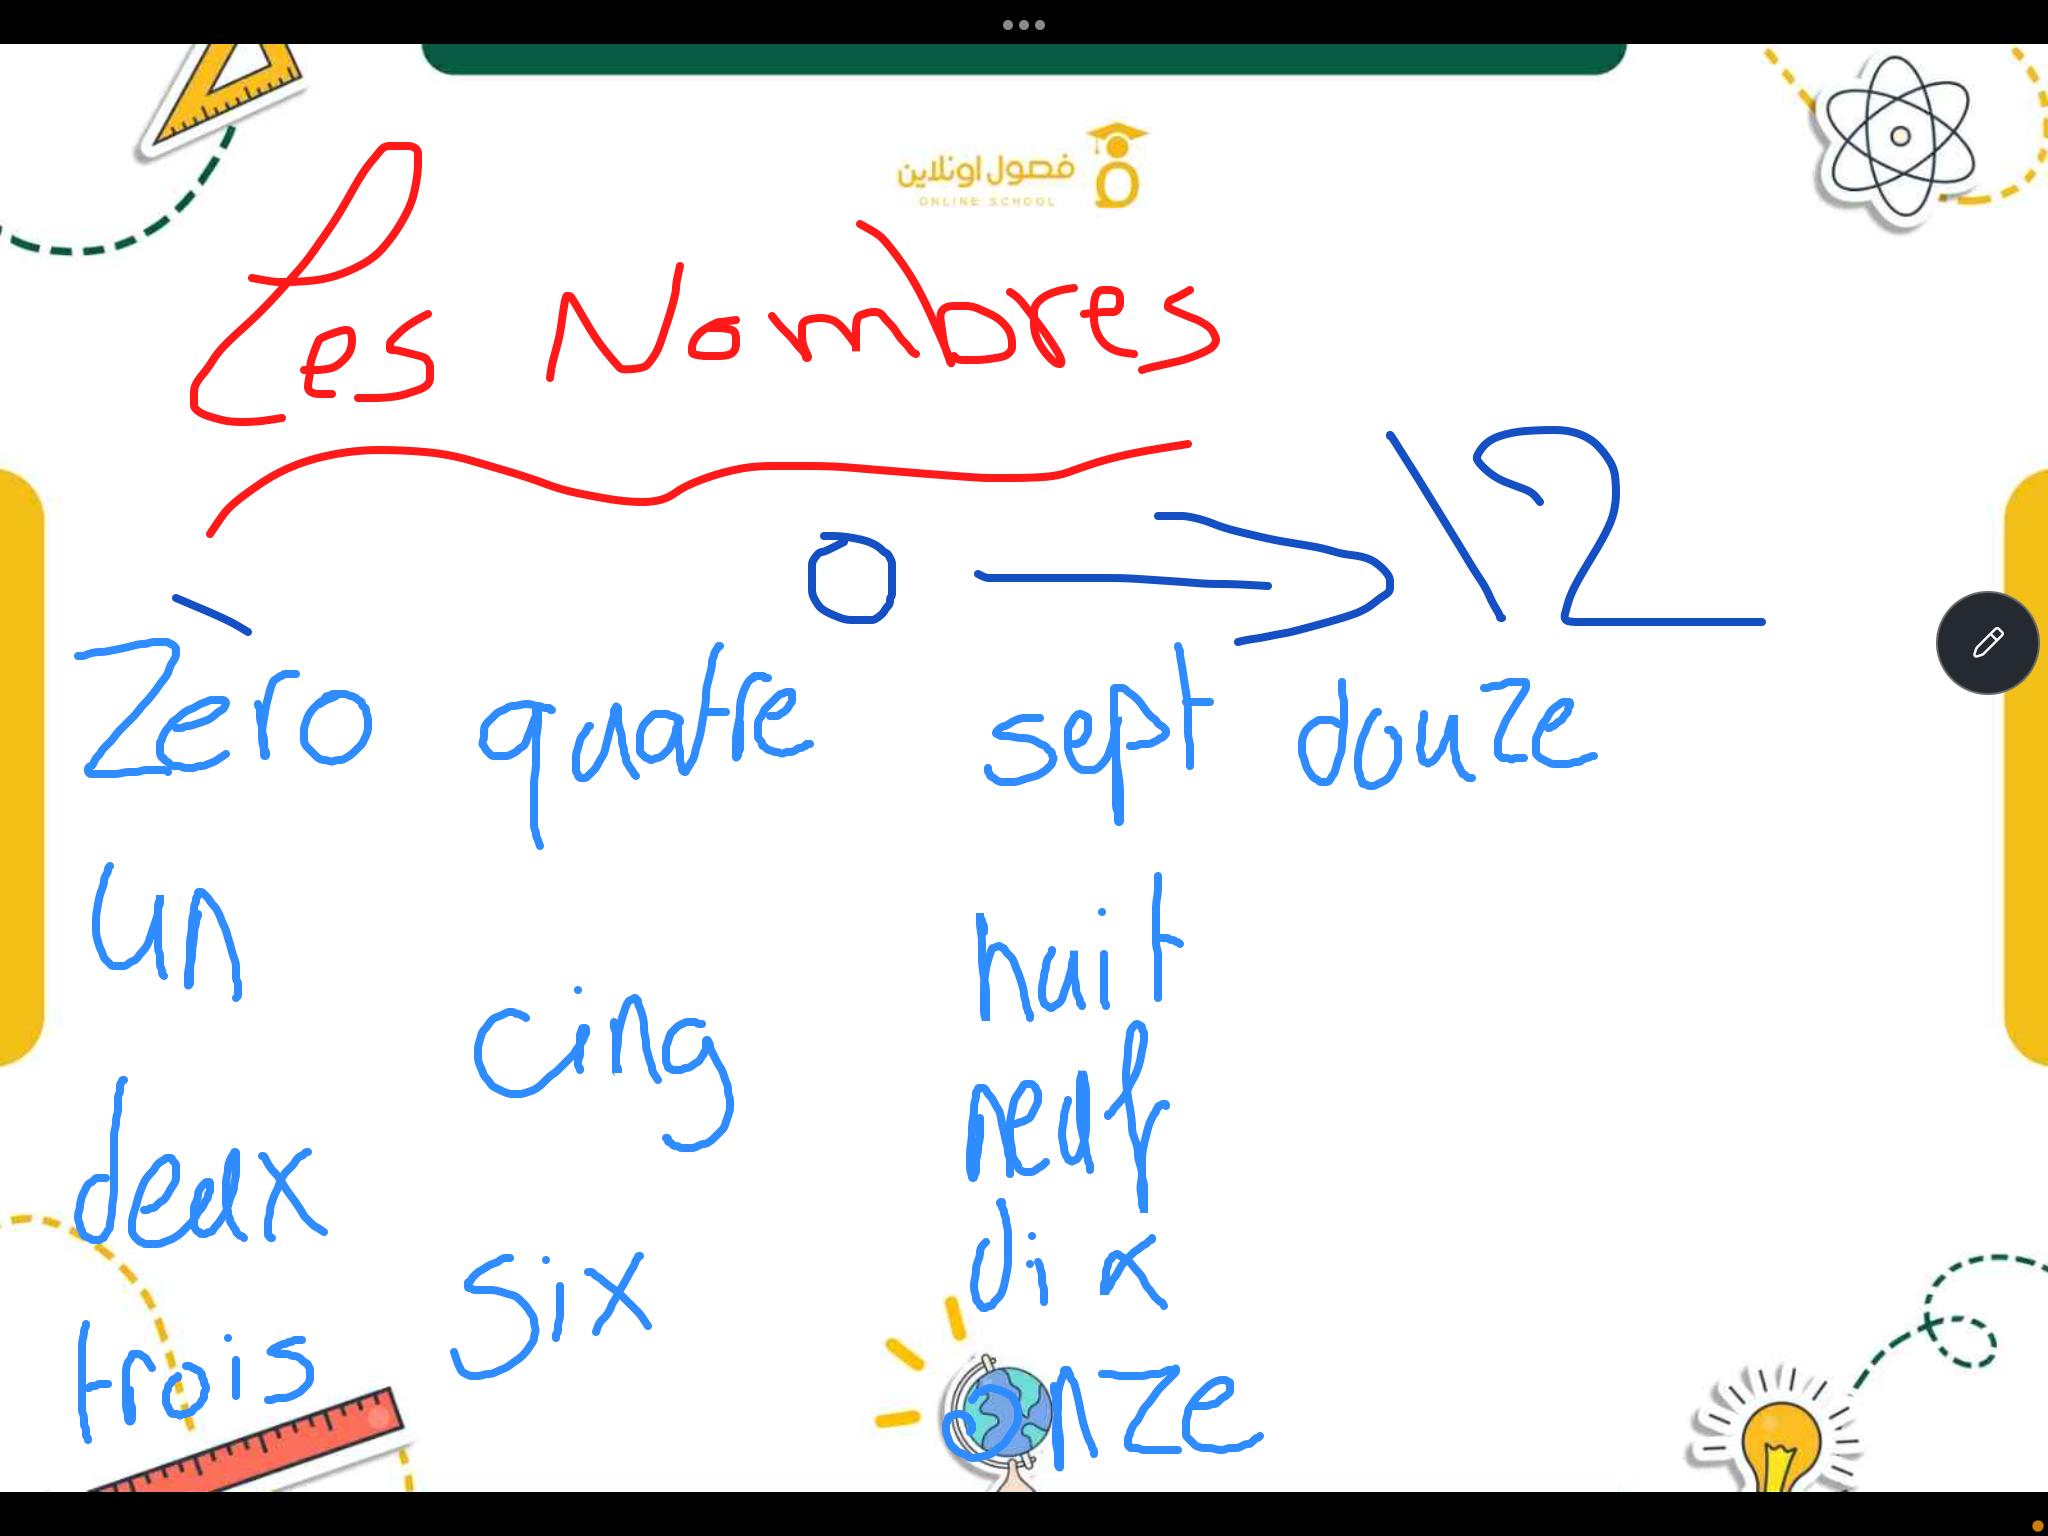 فصول اونلاين
ONLINE SCHOOL
Les Nombres
0 → 12
Zèro quatre sept douze
un
huit
cinq
neuf
deux
dix
six
trois
onze